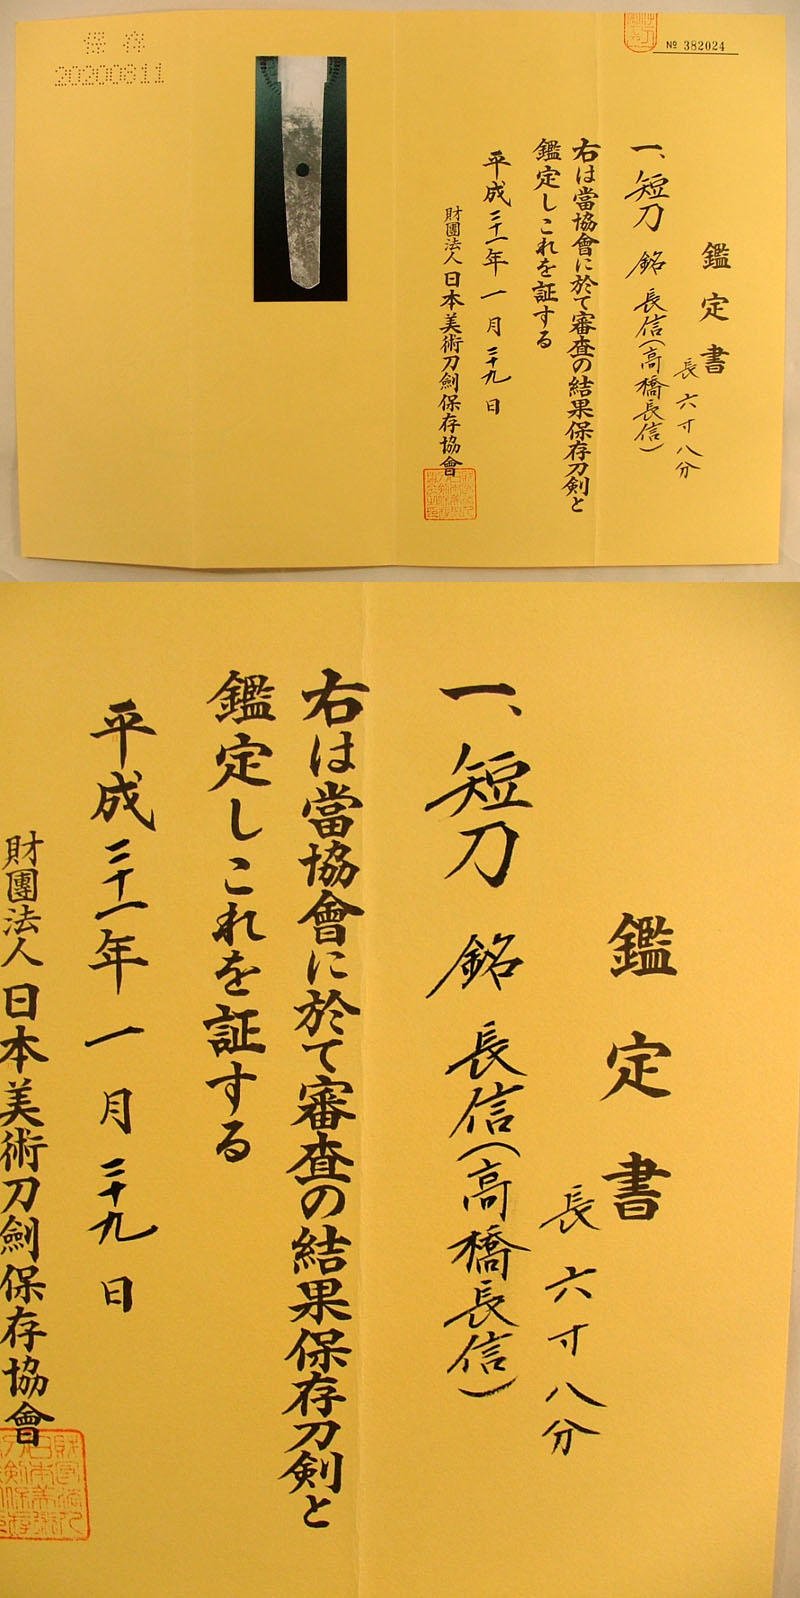 保存
20200811
№ 382024
鑑定書
長六寸八分
一、短刀 銘 長信(高橋長信)
右は當協會に於て審査の結果保存刀剣と
鑑定しこれを証する
平成二十一年一月二十九日
財團法人日本美術刀劍保存協會
鑑定書
長六寸八分
一、短刀 銘 長信(高橋長信)
右は當協會に於て審査の結果保存刀剣と
鑑定しこれを証する
平成二十一年一月二十九日
財團法人日本美術刀劍保存協會